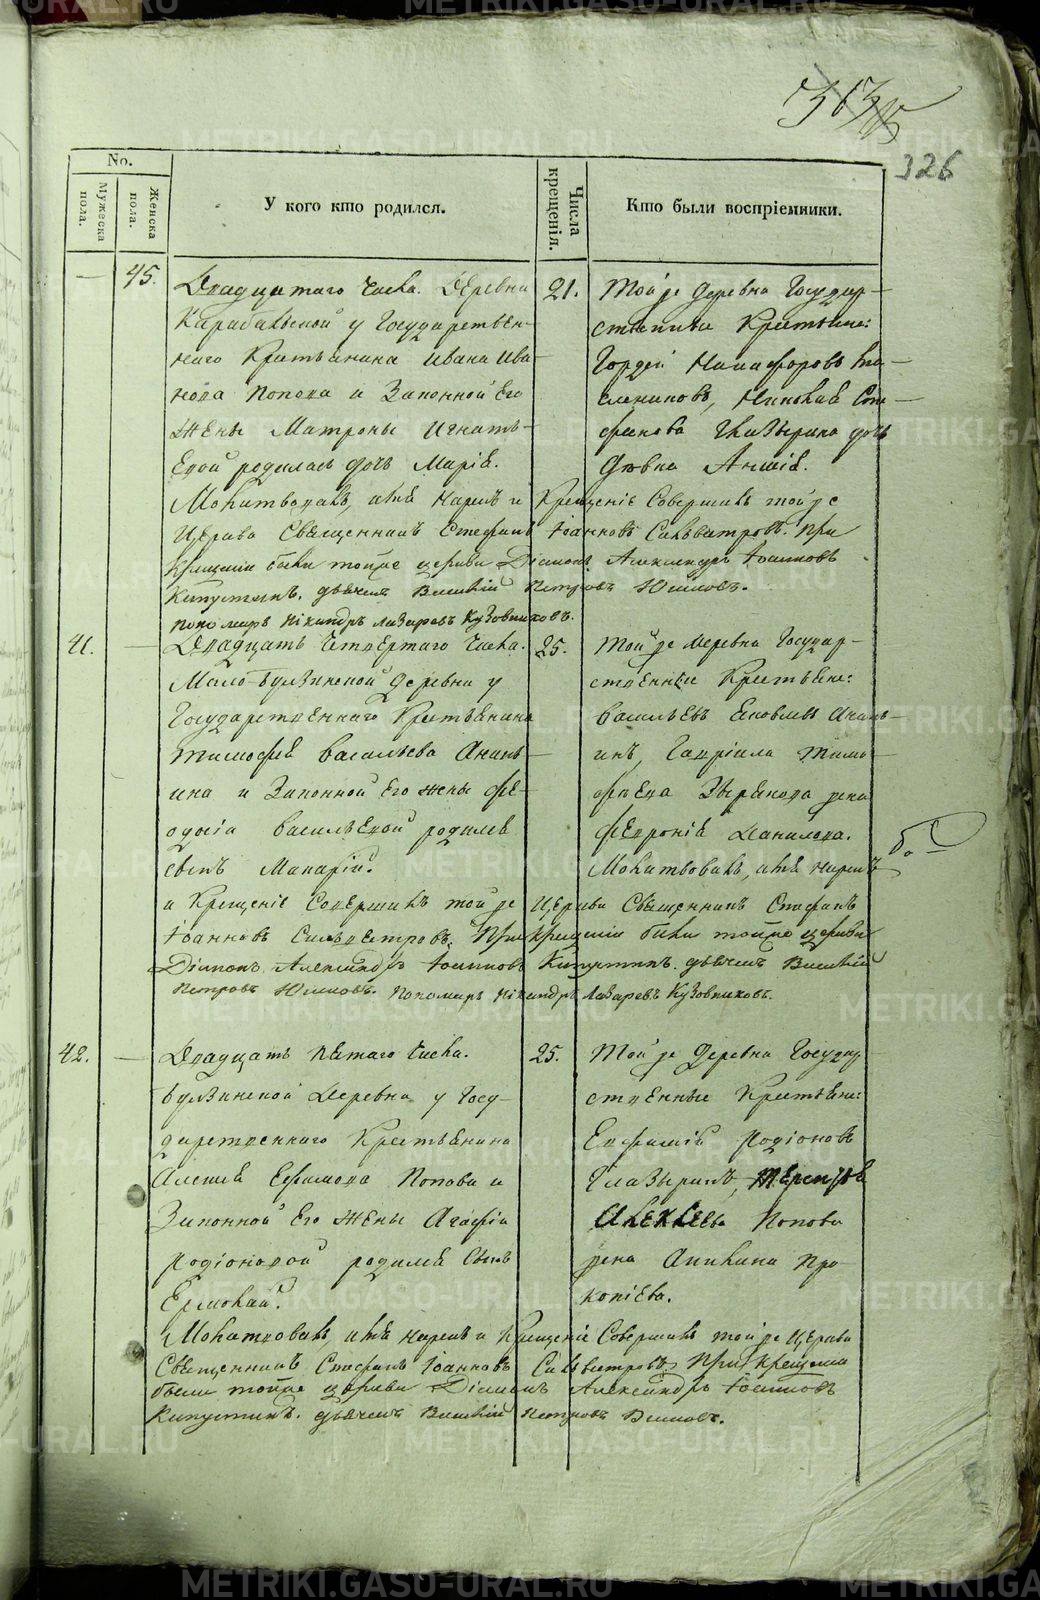 326
No.
Мужеска пола.
Женска пола.
У кого кто родился.
Числа крещенія.
Кто были воспріемники.
45.
Двадцатаго Числа. Деревни
Карабольской у Государствен-
наго Крестьянина Ивана Ива-
нова Попова и Законной Его
Жены Матроны Игнать-
Евой родилась дочь Марія.
21.
Той же Деревни Государ-
ственные Крестьяне:
Гордей
Николай Сте-
фанова Глазырина дочь
Девка
Молитвовалъ, имя нарекъ и Крещеніе Совершилъ той же
Церкви Священникъ Стефанъ Іоанновъ Сильвестровъ. При
Крещеніи были тойже церкви Діаконъ Александръ Іоанновъ
Капустинъ. дьячекъ Василій Петровъ
пономарь Никандръ Лазаревъ Кузовниковъ.
41.
Двадцать Четвертаго Числа.
Мало-Булзинской Деревни у
Государственнаго Крестьянина
Тимофея Васильева Анань-
ина и Законной Его жены Фе-
одосіи Васильевой родился
Сынъ Макарій.
25.
Той же Деревни Государ-
ственные Крестьяне:
Васильевъ Яковлевъ Анань-
инъ, Гавріила Тимо-
фѣева Звѣрикова жена
Февронія Данилова.
Молитвовалъ, имя нарекъ
и Крещеніе Совершилъ той же Церкви Священникъ Стефанъ
Іоанновъ Сильвестровъ. При крещеніи были тойже церкви
Діаконъ Александръ Іоанновъ Капустинъ. дьячекъ Василій
Петровъ Пономарь Никандръ Лазаревъ Кузовниковъ.
42.
Двадцать Пятаго Числа.
Булзинской Деревни у Госу-
дарственнаго Крестьянина
Алексія Ефимова Попова и
Законной Его Жены Агафіи
Родіоновой родился Сынъ
Ермолай.
25.
Той же Деревни Государ-
ственные Крестьяне:
Евфимій Родіоновъ
Глазыринъ, Терентія
Алексѣева Попова
жена Акилина Про-
копіева.
Молитвовалъ, имя нарекъ и Крещеніе Совершилъ той же Церкви
Священникъ Стефанъ Іоанновъ Сильвестровъ. При Крещеніи
были тойже церкви Діаконъ Александръ Іоанновъ
Капустинъ. дьячекъ Василій Петровъ
METRIKI.GASO-URAL.RU